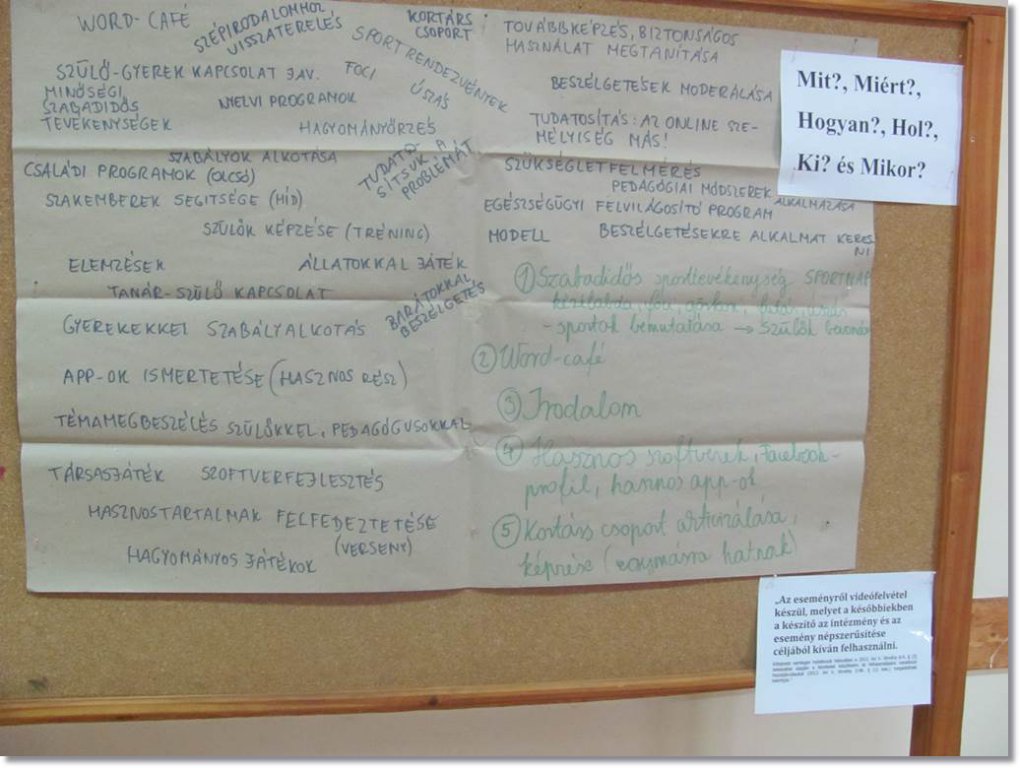 WORD-CAFÉ
SZÉPIRODALOMHOZ
VISSZATERELÉS
KORTÁRS
CSOPORT
SPORTRENDEZVÉNYEK
SZÜLŐ-GYEREK KAPCSOLAT JAV.
FOCI
ÚSZÁS
MINŐSÉGI
SZABADIDŐS
TEVÉKENYSÉGEK
NYELVI PROGRAMOK
HAGYOMÁNYŐRZÉS
SZABÁLYOK ALKOTÁSA
TUDATO-
SÍTSUK A
PROBLÉMÁT
CSALÁDI PROGRAMOK (OLCSÓ)
SZAKEMBEREK SEGITSÉGE (HÍD)
SZÜLŐK KÉPZÉSE (TRÉNING)
ELEMZÉSEK
ÁLLATOKKAL JÁTÉK
TANÁR-SZÜLŐ KAPCSOLAT
BARÁTOKKAL
BESZÉLGETÉS
GYEREKEKKEL SZABÁLYALKOTÁS
APP-OK ISMERTETÉSE (HASZNOS RÉSZ)
TÉMAMEGBESZÉLÉS SZÜLŐKKEL, PEDAGÓGUSOKKAL
TÁRSASJÁTÉK SZOFTVERFEJLESZTÉS
HASZNOSTARTALMAK FELFEDEZTETÉSE
(VERSENY)
HAGYOMÁNYOS JÁTÉKOK
TOVÁBBKÉPZÉS, BIZTONSÁGOS
HASZNÁLAT MEGTANÍTÁSA
BESZÉLGETÉSEK MODERÁLÁSA
TUDATOSÍTÁS: AZ ONLINE SZE-
MÉLYISÉG MÁS!
SZÜKSÉGLETFELMÉRÉS
PEDAGÓGIAI MÓDSZEREK ALKALMAZÁSA
EGÉSZSÉGÜGYI FELVILÁGOSÍTÓ PROGRAM
MODELL BESZÉLGETÉSEKRE ALKALMAT KERES
NI
① Szabadidős sporttevékenység SPORTNAP
kézilabda, foci, úszás
- sportok bemutatása → szülők
② Word-café
③ Irodalom
④ Hasznos szoftverek, Facebook-
profil, hasznos app-ok
⑤ Kortárs csoport aktivizálása,
képzése (egymásra hatnak)
Mit?, Miért?,
Hogyan?, Hol?,
Ki? és Mikor?
„Az eseményről videófelvétel
készül, melyet a későbbiekben
a készítő az intézmény és az
esemény népszerűsítése
céljából kíván felhasználni.